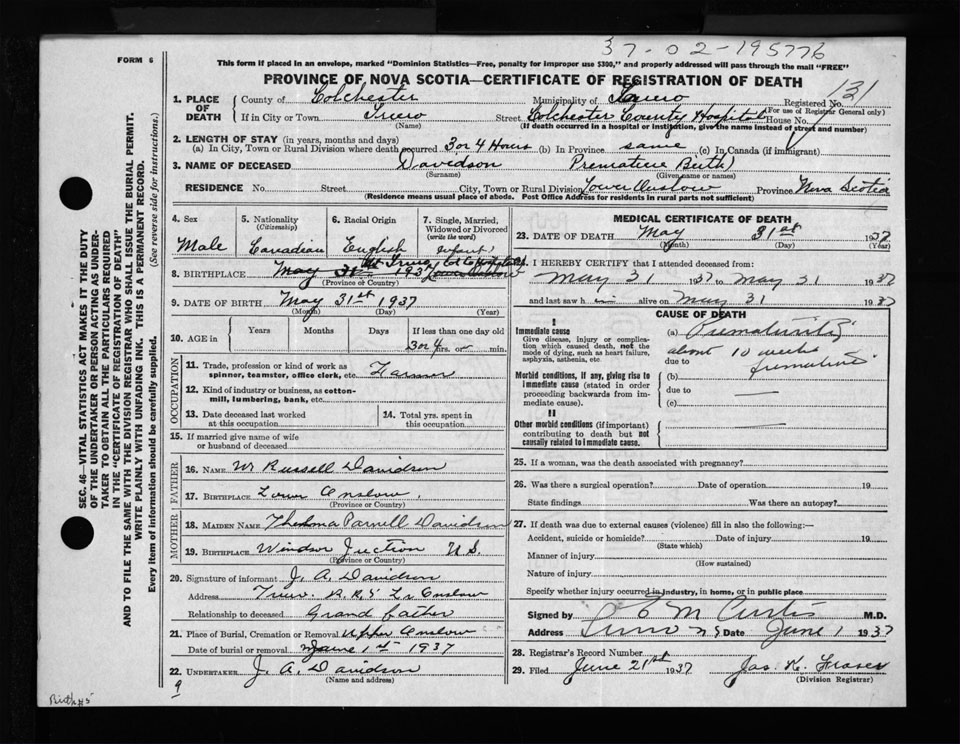 37-02-195776
FORM 6
This form if placed in an envelope, marked "Dominion Statistics—Free, penalty for improper use $300," and properly addressed will pass through the mail "FREE"
PROVINCE OF NOVA SCOTIA—CERTIFICATE OF REGISTRATION OF DEATH
131
1. PLACE OF DEATH
County of Colchester Municipality of Truro Registered No.
(For use of Registrar General only)
If in City or Town Truro Street Colchester County Hospital House No.
(Name) (If death occurred in a hospital or institution, give the name instead of street and number)
2. LENGTH OF STAY (in years, months and days)
(a) In City, Town or Rural Division where death occurred 3 or 4 Hours (b) In Province same (c) In Canada (if immigrant)
3. NAME OF DECEASED Davidson Premature Birth
(Surname) (Given name or names)
RESIDENCE No. Street City, Town or Rural Division Lower Onslow Province Nova Scotia
(Residence means usual place of abode. Post Office Address for residents in rural parts not sufficient)
4. Sex
Male
5. Nationality
(Citizenship)
Canadian
6. Racial Origin
English
7. Single, Married, Widowed or Divorced
(write the word)
infant
8. BIRTHPLACE May 31st 1937 Lower Onslow
At Truro, Col Co Hospital
(Province or Country)
9. DATE OF BIRTH May 31st 1937
(Month) (Day) (Year)
10. AGE in
Years Months Days If less than one day old
3 or 4 hrs. or min.
OCCUPATION
11. Trade, profession or kind of work as spinner, teamster, office clerk, etc. Farmer
12. Kind of industry or business, as cotton-mill, lumbering, bank, etc.
13. Date deceased last worked at this occupation
14. Total yrs. spent in this occupation
15. If married give name of wife or husband of deceased
FATHER
16. NAME W Russell Davidson
17. BIRTHPLACE Lower Onslow
(Province or Country)
MOTHER
18. MAIDEN NAME Thelma Parnell Davidson
19. BIRTHPLACE Windsor Juction N.S.
(Province or Country)
20. Signature of informant J. A. Davidson
Address Truro. R.R 5 Lr Onslow
Relationship to deceased Grand father
21. Place of Burial, Cremation or Removal Upper Onslow
Date of burial or removal June 1st 1937
22. UNDERTAKER J. A. Davidson
(Name and address)
9
Birth #5
MEDICAL CERTIFICATE OF DEATH
23. DATE OF DEATH May 31st 1937
(Month) (Day) (Year)
I HEREBY CERTIFY that I attended deceased from
May 31 1937 to May 31 1937
and last saw him alive on May 31 1937
CAUSE OF DEATH
I
Immediate cause
Give disease, injury or complication which caused death, not the mode of dying, such as heart failure, asphyxia, asthenia, etc.
(a) Prematurity
about 10 weeks
due to premature
Morbid conditions, if any, giving rise to immediate cause (stated in order proceeding backwards from immediate cause).
(b)
due to
(c)
II
Other morbid conditions (if important) contributing to death but not causally related to immediate cause.
25. If a woman, was the death associated with pregnancy?
26. Was there a surgical operation? Date of operation 19
State findings Was there an autopsy?
27. If death was due to external causes (violence) fill in also the following:—
Accident, suicide or homicide? Date of injury 19
(State which)
Manner of injury
(How sustained)
Nature of injury
Specify whether injury occurred in industry, in home, or in public place
Signed by E M Curtis M.D.
Address Truro NS Date June 1 1937
28. Registrar's Record Number
29. Filed June 21st 1937 Jas. K. Fraser
(Division Registrar)
SEC. 46—VITAL STATISTICS ACT MAKES IT THE DUTY
OF THE UNDERTAKER OR PERSON ACTING AS UNDER-
TAKER TO OBTAIN ALL THE PARTICULARS REQUIRED
IN THE "CERTIFICATE OF REGISTRATION OF DEATH"
AND TO FILE THE SAME WITH THE DIVISION REGISTRAR WHO SHALL ISSUE THE BURIAL PERMIT.
WRITE PLAINLY WITH UNFADING INK. THIS IS A PERMANENT RECORD.
Every item of information should be carefully supplied. (See reverse side for instructions.)